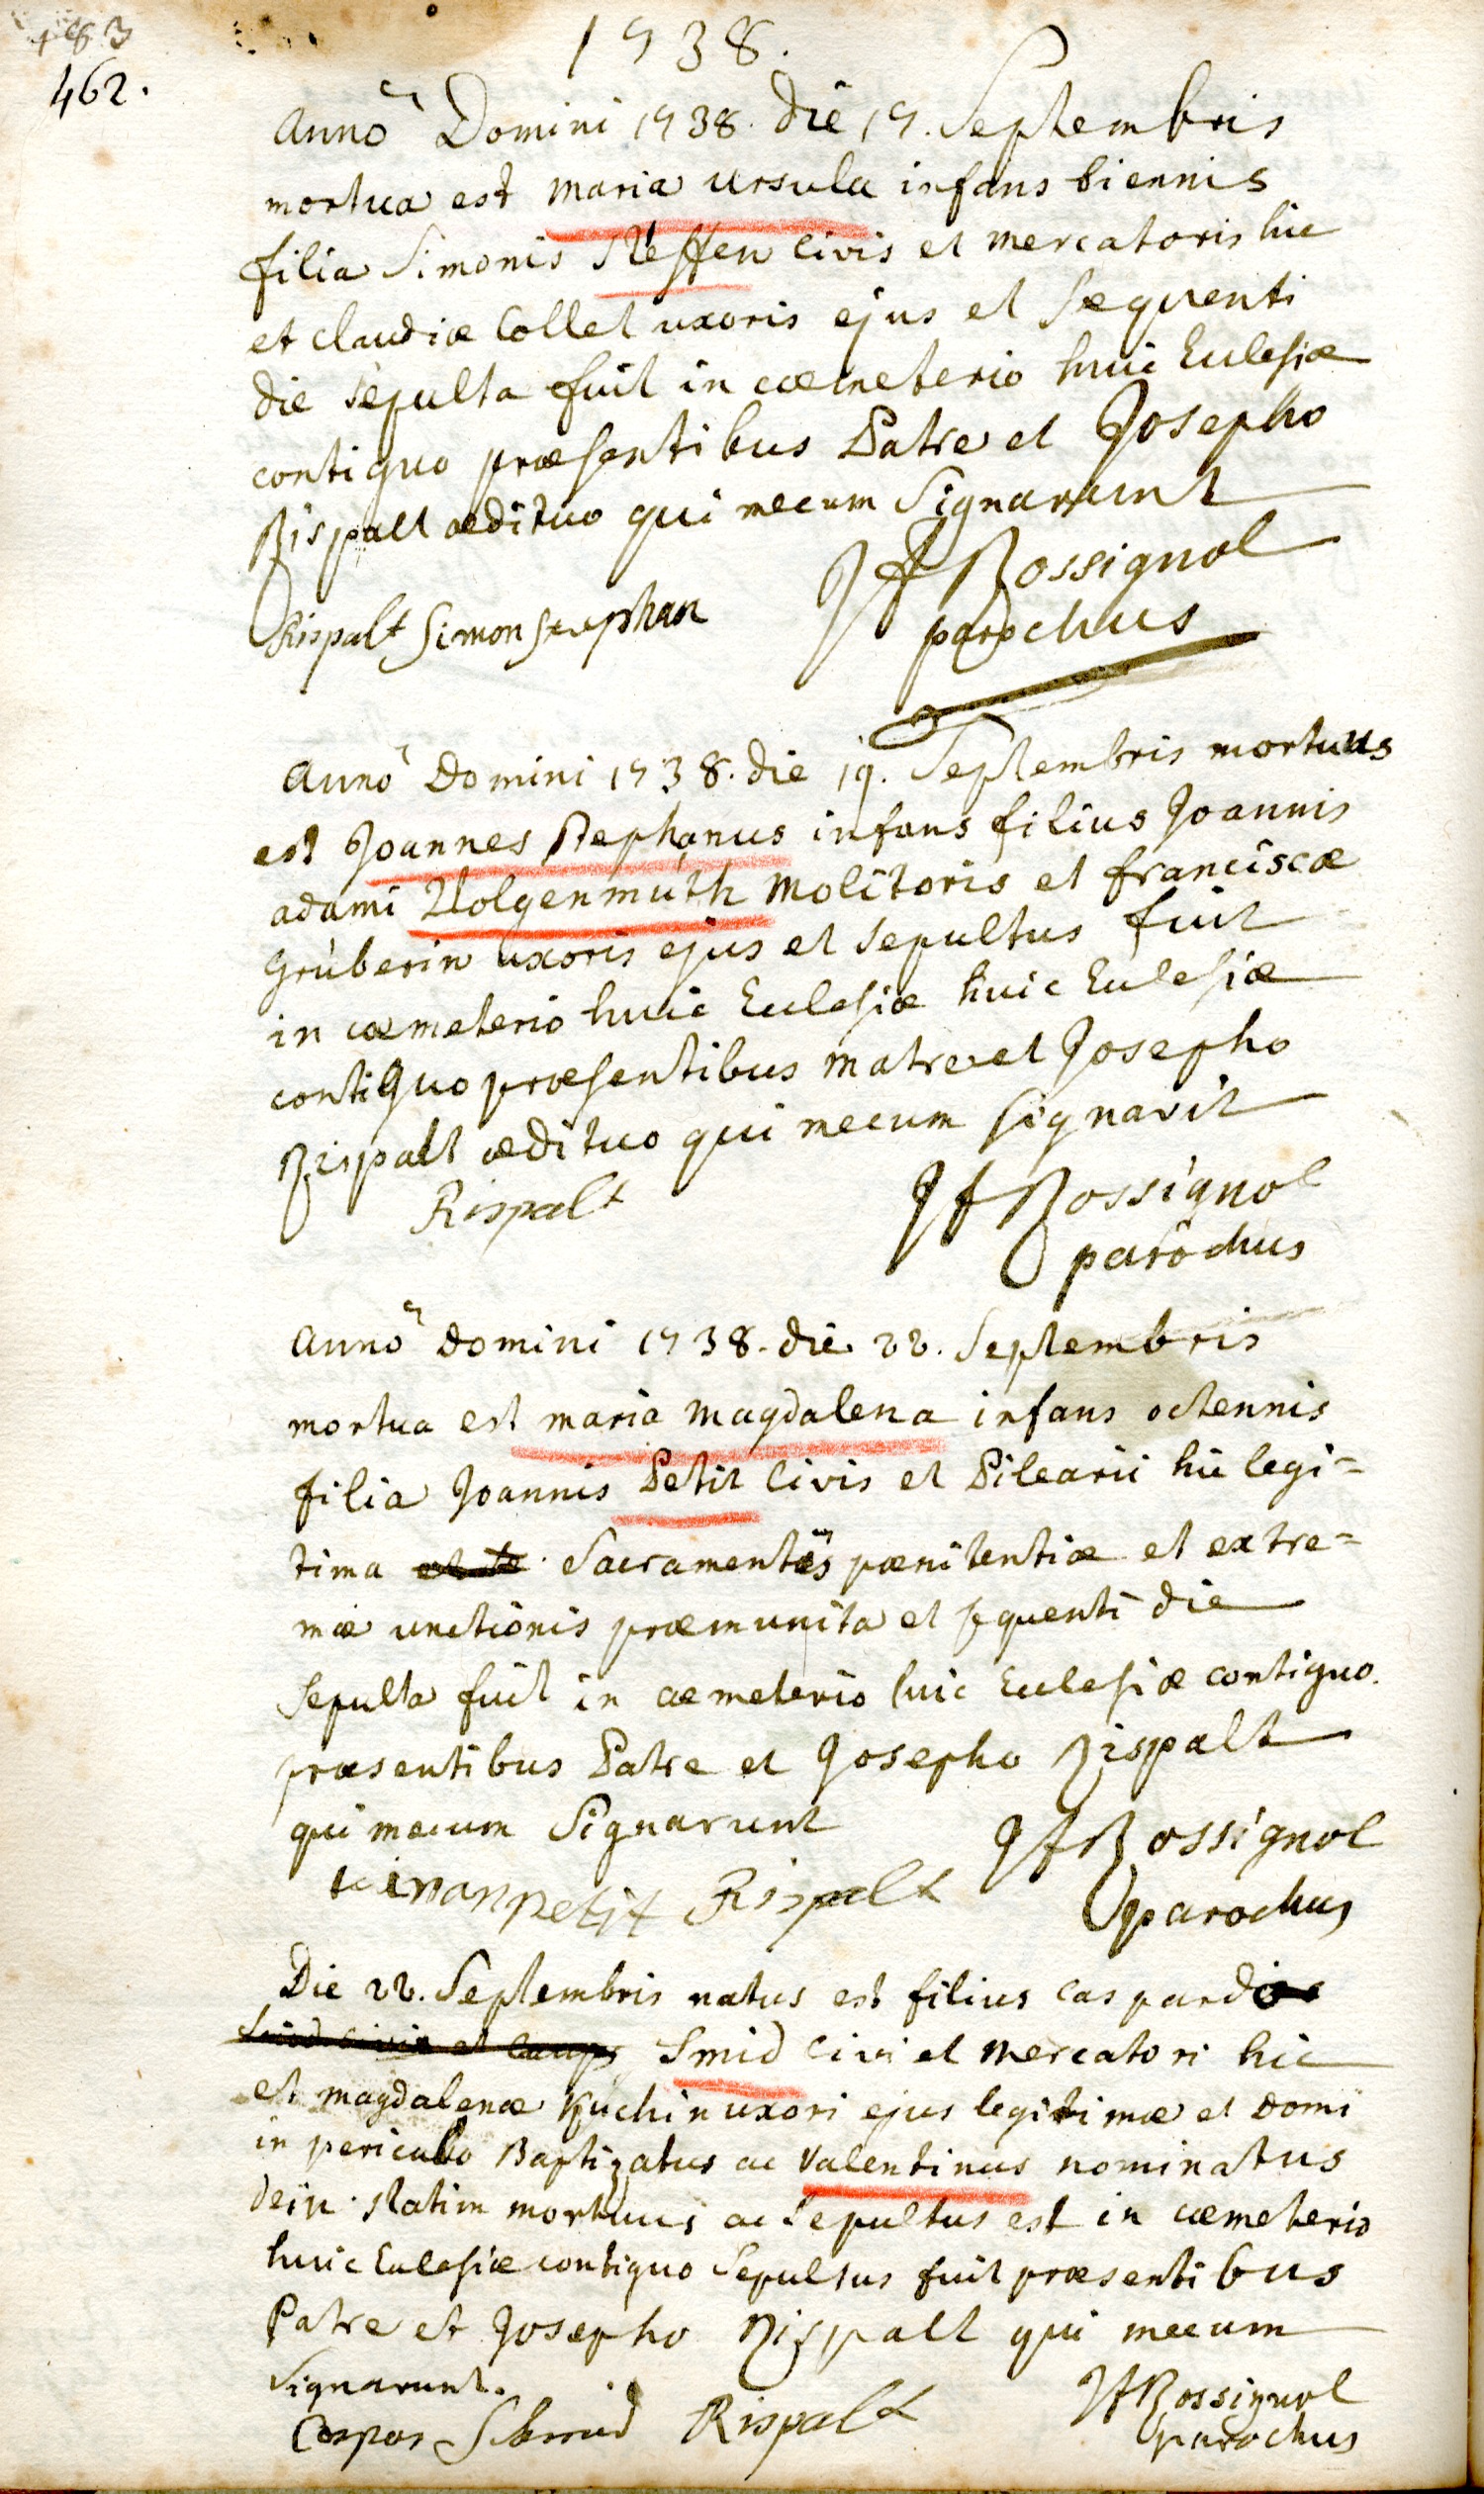 1738.
462.
Anno Domini 1738. die 17. Septembris
mortua est Maria Ursula infans biennis
filia Simonis Steffen civis et mercatoris hic
et Claudiæ Collet uxoris ejus et sequenti
die sepulta fuit in cœmeterio huic Ecclesiæ
contiguo præsentibus Patre et Josepho
Rispalt ædituo qui mecum signarunt
Rispalt Simon Stephan JF Rossignol
parochus
Anno Domini 1738. die 19. Septembris mortuus
est Joannes Stephanus infans filius Joannis
adami Wolgenmuth molitoris et franciscæ
Gruberin uxoris ejus et sepultus fuit
in cœmeterio huic Ecclesiæ huic Ecclesiæ
contiguo præsentibus matre et Josepho
Rispalt ædituo qui mecum signavit
Rispalt JF Rossignol
parochus
Anno Domini 1738. die 22. Septembris
mortua est maria magdalena infans octennis
filia Joannis Petit civis et Pilearii hic legi=
tima Sacramentis pœnitentiæ et extre=
mæ unctionis præmunita et sequenti die
sepulta fuit in cœmeterio huic Ecclesiæ contiguo.
præsentibus Patre et Josepho Rispalt
qui mecum signarunt JF Rossignol
petit Rispalt parochus
Die 22. Septembris natus est filius Caspardo
Smid civi et mercatori hic
et magdalenæ Kuchin uxori ejus legitimæ et domi
in periculo Baptizatus ac Valentinus nominatus
dein statim mortuus ac sepultus est in cœmeterio
huic Ecclesiæ contiguo sepultus fuit præsentibus
Patre et Josepho Rispalt qui mecum
signarunt. JF Rossignol
Caspar Schmid Rispalt parochus